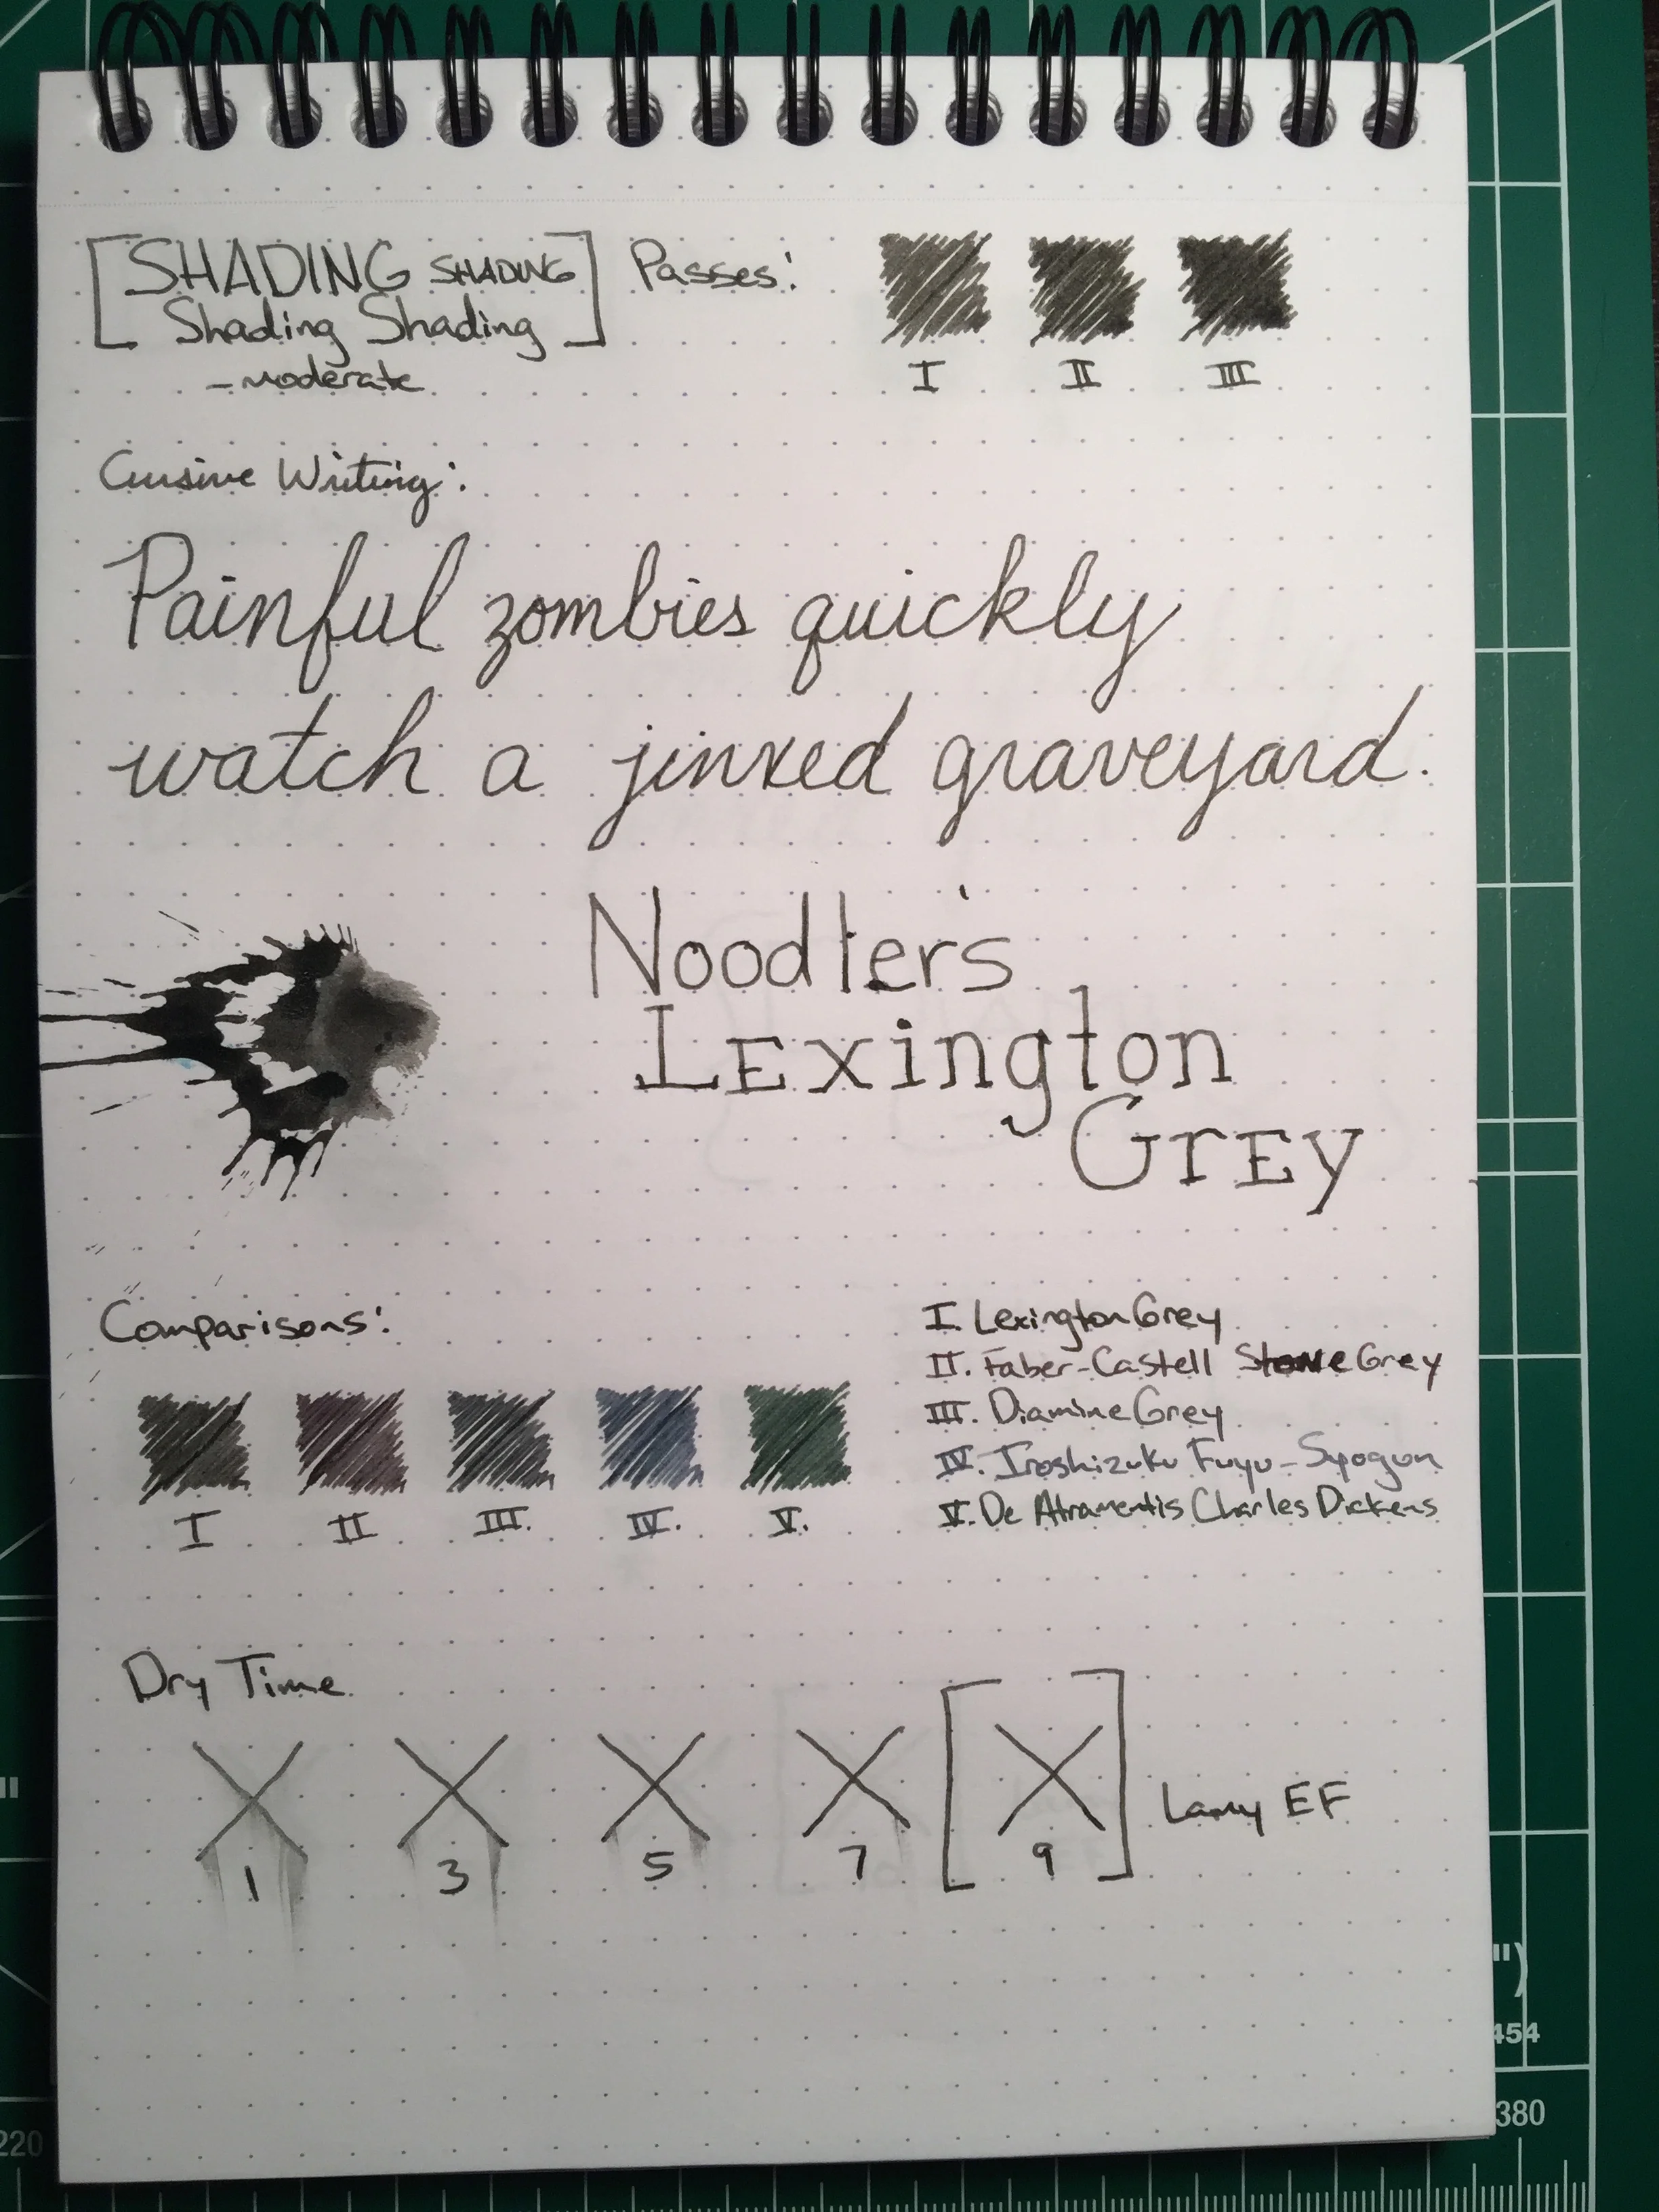 SHADING SHADING
Shading Shading
- moderate
Passes:
I II III
Cursive Writing:
Painful zombies quickly
watch a jinxed graveyard.
Noodler's
Lexington
Grey
Comparisons:
I II III. IV. V.
I. Lexington Grey
II. Faber-Castell Stone Grey
III. Diamine Grey
IV. Iroshizuku Fuyu-Syogun
V. De Atramentis Charles Dickens
Dry Time
X X X X X
1 3 5 7 9
Lamy EF
")
454
380
220
"